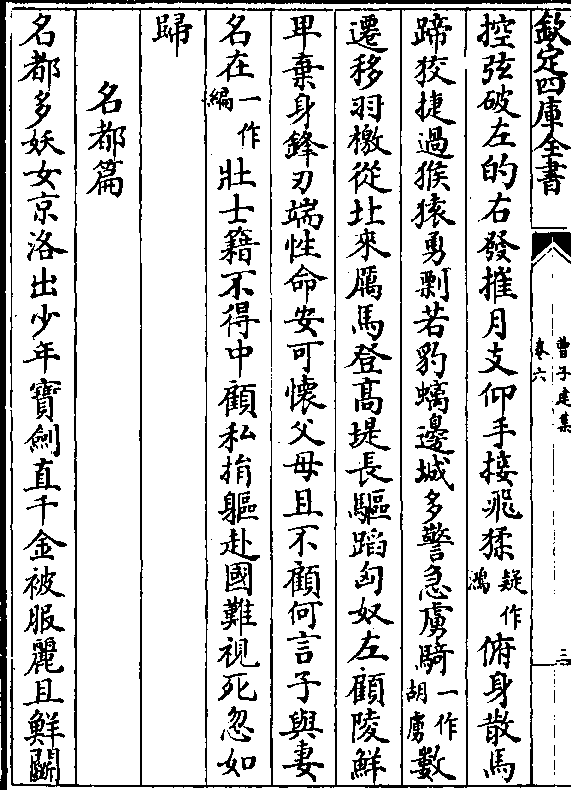 欽定四庫全書
曹子建集
卷六
三
控弦破左的右發摧月支仰手接飛猱疑作鴻俯身散馬
蹄狡捷過猴猿勇剽若豹螭邊城多警急虜騎一作胡虜數
遷移羽檄從北來厲馬登髙堤長驅蹈匈奴左顧陵鮮
卑棄身鋒刃端性命安可懐父母且不顧何言子與妻
名在一作編壯士籍不得中顧私捐軀赴國難視死忽如
歸
名都篇
名都多妖女京洛出少年寳劍直千金被服麗且鮮鬭